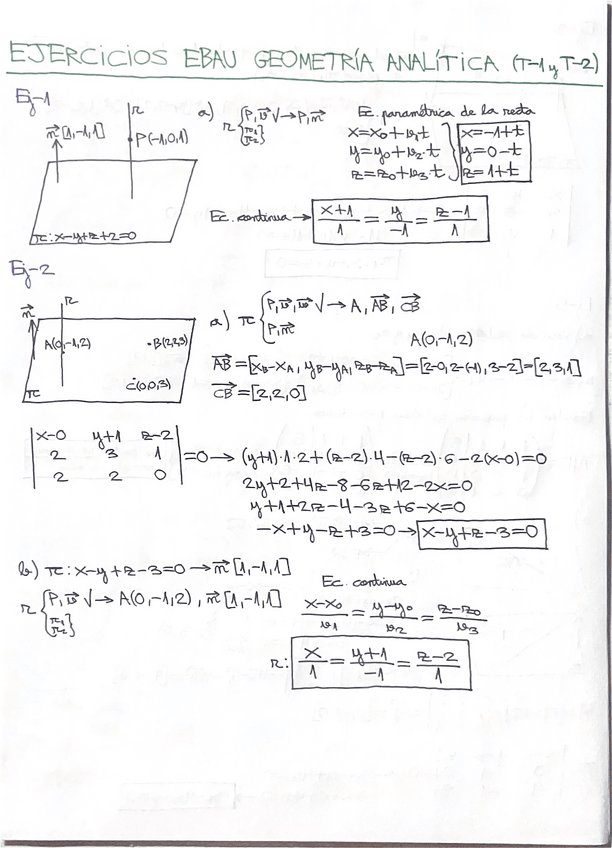 EJERCICIOS EBAU GEOMETRÍA ANALÍTICA (T-1 y T-2)
Ej-1
n⃗ [1,-1,1]
r
P(-1,0,1)
π: x-y+z+2=0
a) r { P, v⃗ √ → P, n⃗
π1
π2
Ec. paramétrica de la recta
x=x0+v1·t
y=y0+v2·t
z=z0+v3·t
x=-1+t
y=0-t
z=1+t
Ec. continua → (x+1)/1 = y/-1 = (z-1)/1
Ej-2
n⃗
r
A(0,-1,2)
·B(2,2,3)
C(0,0,3)
π
a) π { P, v⃗, w⃗ √ → A, AB⃗, CB⃗
P, n⃗
A(0,-1,2)
AB⃗=[xB-xA, yB-yA, zB-zA]=[2-0,2-(-1),3-2]=[2,3,1]
CB⃗=[2,2,0]
|x-0 y+1 z-2|
|2 3 1| =0 → (y+1)·1·2+(z-2)·4-(z-2)·6-2(x-0)=0
|2 2 0|
2y+2+4z-8-6z+12-2x=0
y+1+2z-4-3z+6-x=0
-x+y-z+3=0 → x-y+z-3=0
b) π: x-y+z-3=0 → n⃗ [1,-1,1]
r { P, v⃗ √ → A(0,-1,2), n⃗ [1,-1,1]
π1
π2
Ec. continua
(x-x0)/v1 = (y-y0)/v2 = (z-z0)/v3
r: x/1 = (y+1)/-1 = (z-2)/1